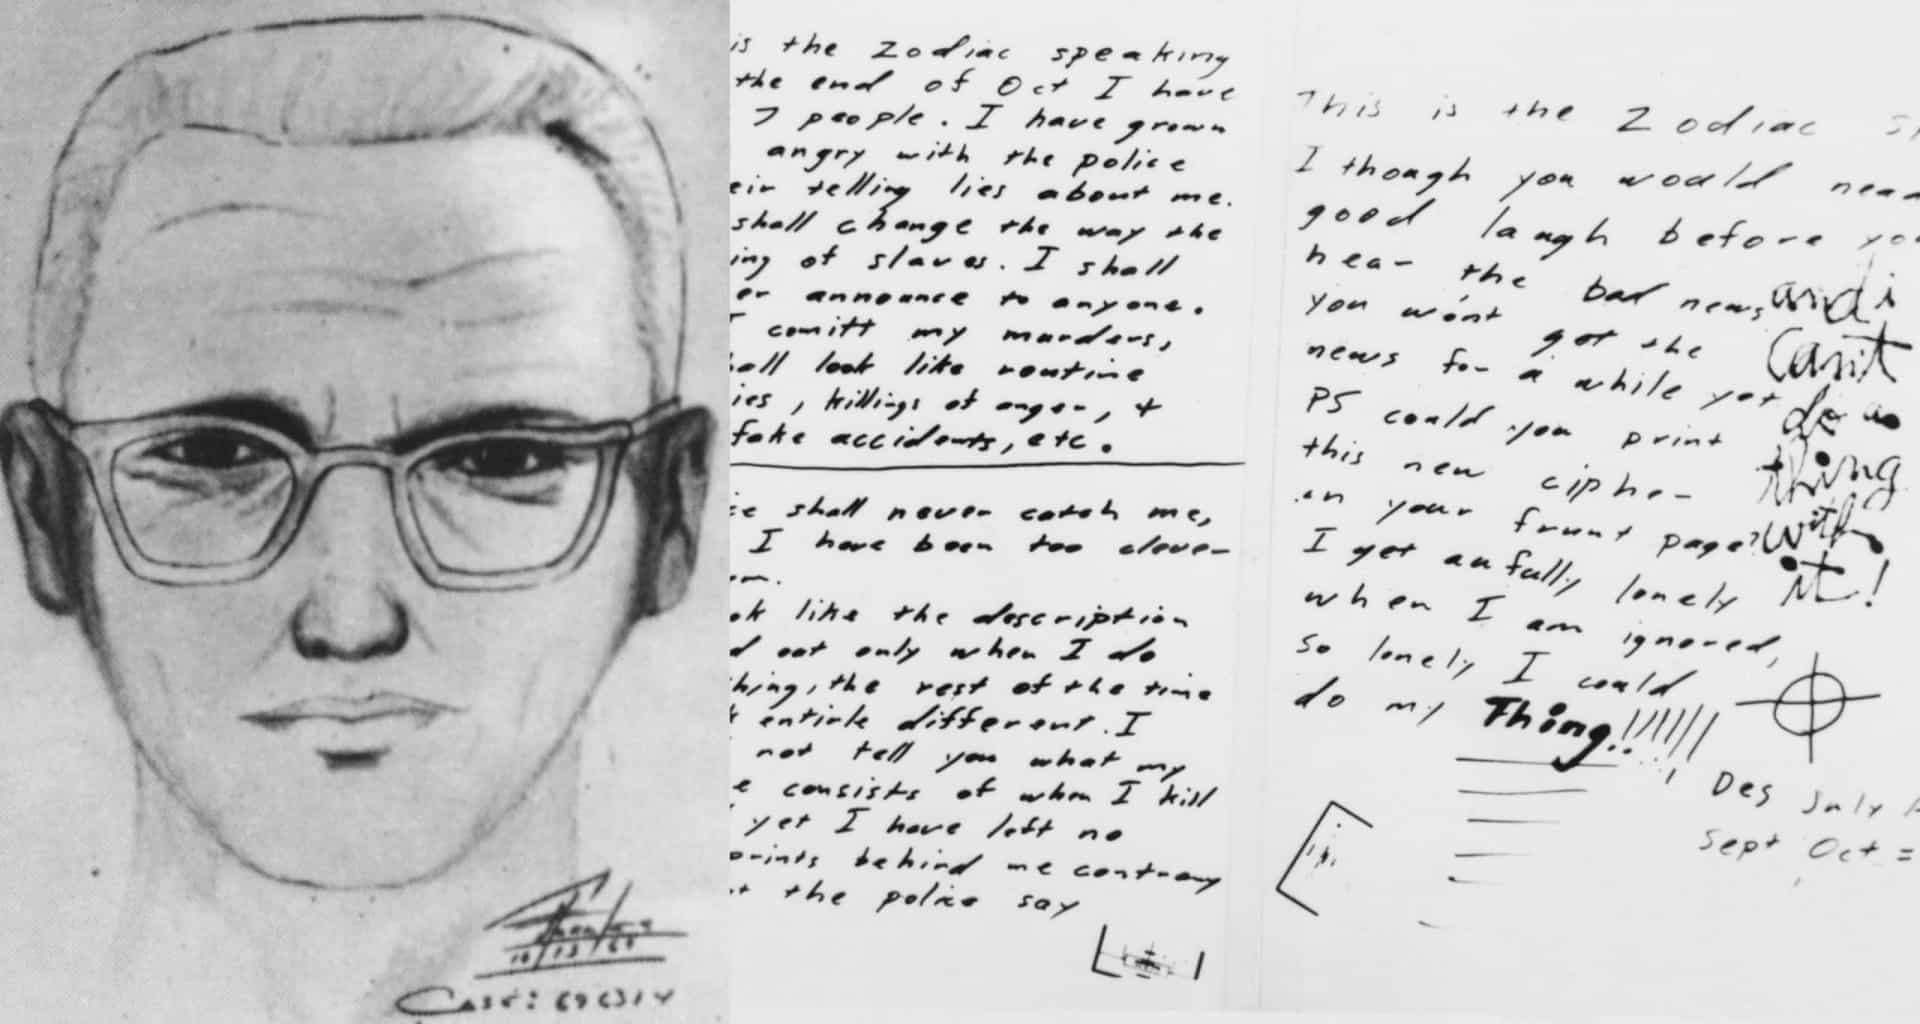 10/13/69
Case: 696314
is the Zodiac speaking
the end of Oct I have
7 people. I have grown
angry with the police
eir telling lies about me.
shall change the way the
ing of slaves. I shall
er announce to anyone.
I comitt my murders,
all look like routine
ies, killings of anger, +
fake accidents, etc.
ce shall never catch me,
I have been too clever
em.
ok like the description
d out only when I do
hing, the rest of the time
k entirle different. I
not tell you what my
e consists of when I kill
yet I have left no
prints behind me contrary
t the police say
This is the Zodiac sp
I though you would nead
good laugh before you
hear the bad news
you won't get the
news for a while yet
PS could you print
this new cipher
in your frunt page?
I get awfully lonely
when I am ignored,
so lonely I could
do my Thing!!!!!!
and i
can't
do a
thing
with
it!
Des July A
Sept Oct =